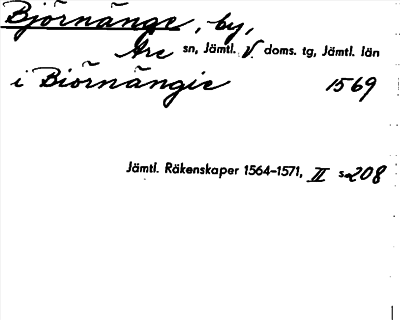 Björnänge, by,
Åre sn, Jämtl. V. doms. tg, Jämtl. län
i Biörnängie 1569
Jämtl. Räkenskaper 1564-1571, II s. 208